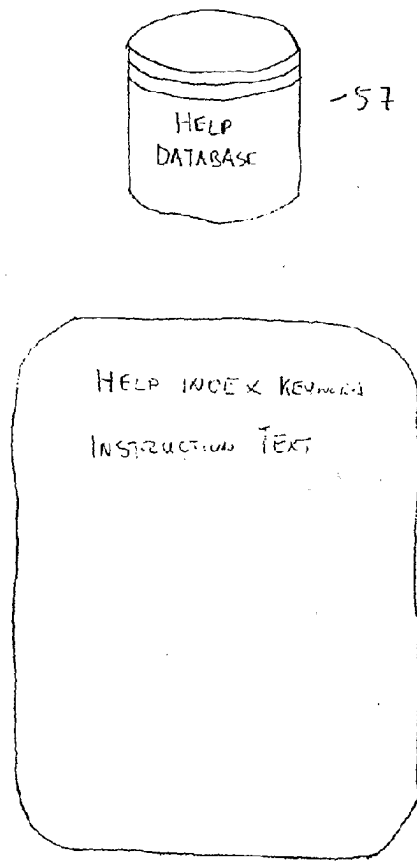 HELP
DATABASE
-57
HELP INDEX KEYWORDS
INSTRUCTION TEXT